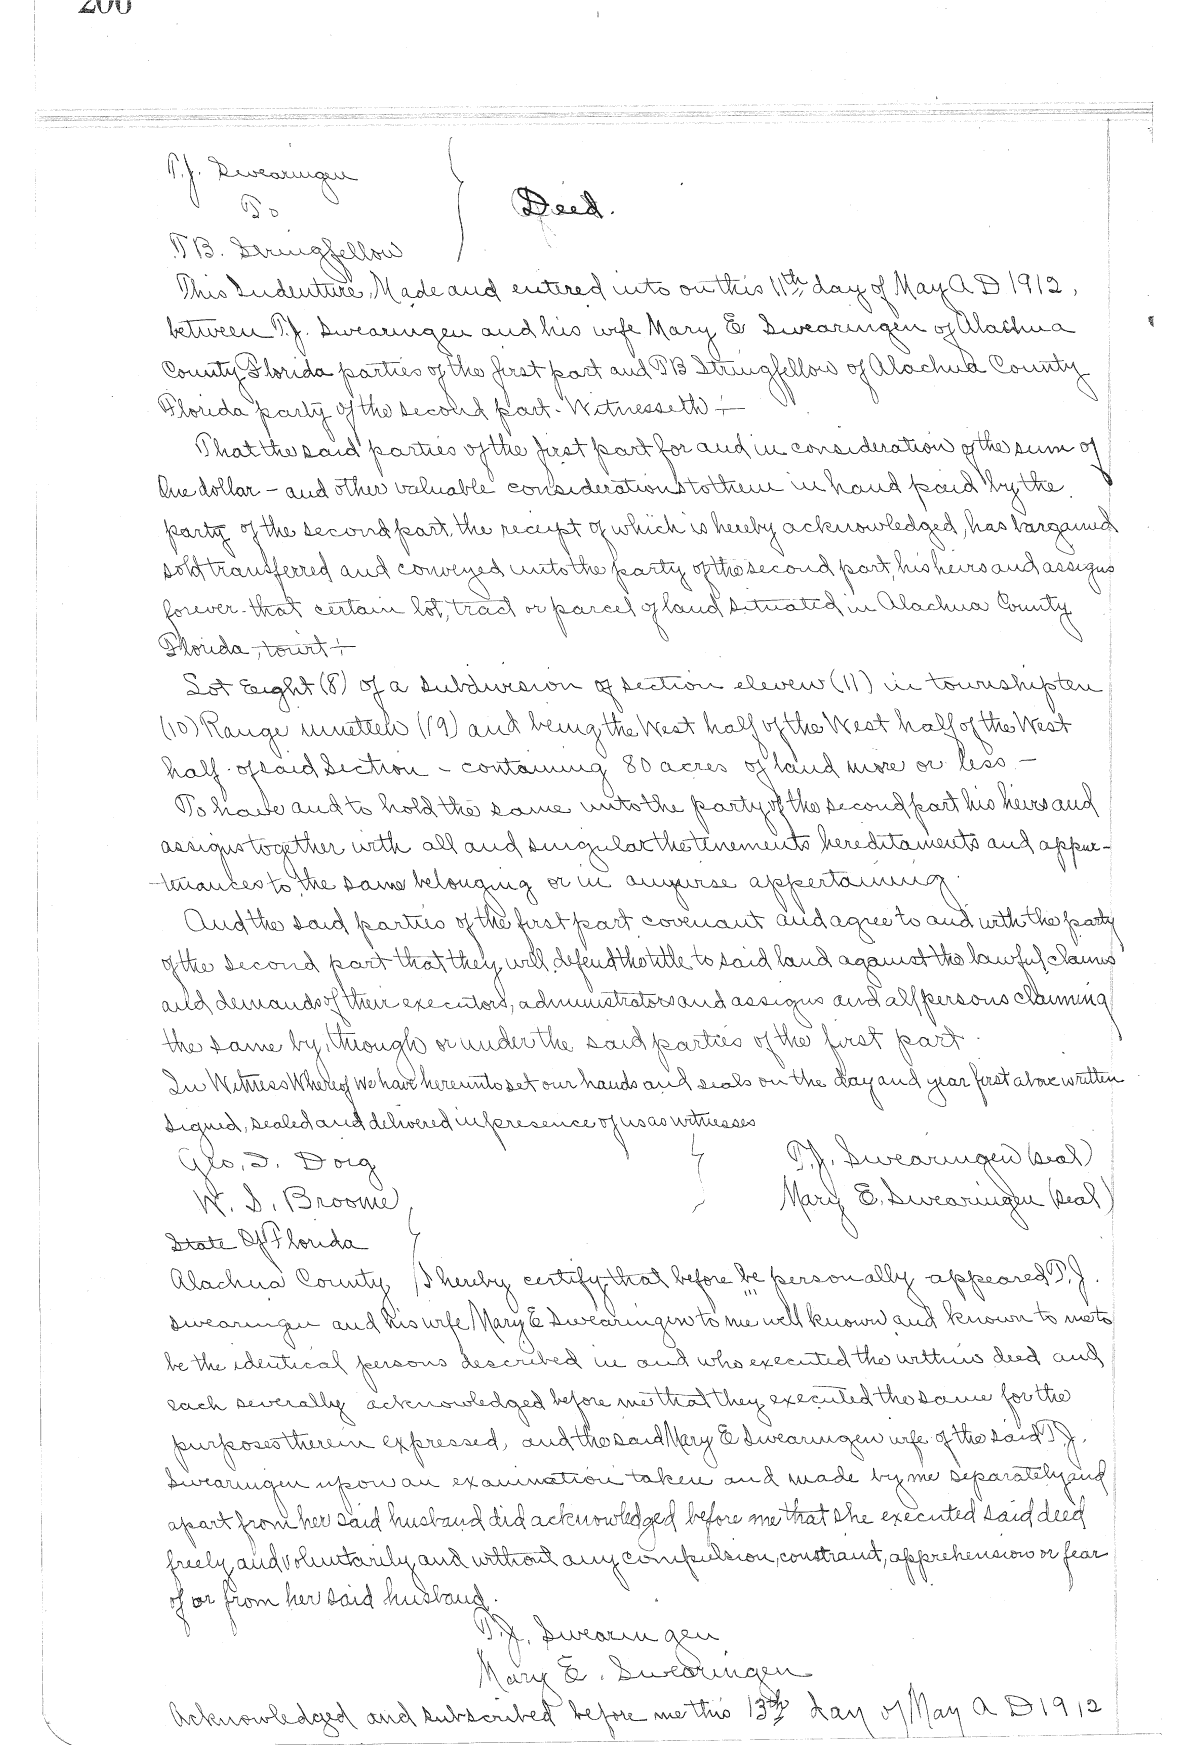 200
T.J. Swearingen
To
Deed.
T B. Stringfellow
This Indenture, Made and entered into on this 11th day of May A D 1912,
between T.J. Swearingen and his wife Mary E Swearingen of Alachua
County Florida parties of the first part and T B Stringfellow of Alachua County
Florida party of the second part. Witnesseth:-
That the said parties of the first part for and in consideration of the sum of
One dollar - and other valuable considerations to them in hand paid by the
party of the second part, the receipt of which is hereby acknowledged, has bargained
sold transferred and conveyed unto the party of the second part, his heirs and assigns
forever. that certain lot, tract or parcel of land situated in Alachua County
Florida, towit:-
Lot Eight (8) of a subdivision of section eleven (11) in township ten
(10) Range ninetten (19) and being the West half of the West half of the West
half of said Section - containing 80 acres of land more or less -
To have and to hold the same unto the party of the second part his heirs and
assigns together with all and singular the tenements hereditaments and appur-
-tenances to the same belonging or in anywise appertaining.
And the said parties of the first part covenant and agree to and with the party
of the second part that they will defend the title to said land against the lawful claims
and demands of their executors, administrators and assigns and all persons claiming
the same by, through or under the said parties of the first part.
In Witness Whereof we have hereunto set our hands and seals on the day and year first above written
Signed, sealed and delivered in presence of us as witnesses
Geo. I. Doig
T.J. Swearingen (seal)
W. S. Broome
Mary E. Swearingen (seal)
State Of Florida
Alachua County I hereby certify that before be personally appeared T.J.
Swearingen and his wife Mary E Swearingen to me well known and known to me to
be the identical persons described in and who executed the within deed and
each severally acknowledged before me that they executed the same for the
purposes therein expressed, and the said Mary E Swearingen wife of the said T.J.
Swearingen upon an examination taken and made by me separately and
apart from her said husband did acknowledged before me that she executed said deed
freely and voluntarily and without any compulsion, constraint, apprehension or fear
of or from her said husband.
T.J. Swearingen
Mary E. Swearingen
Acknowledged and subscribed before me this 13th day of May A D 1912